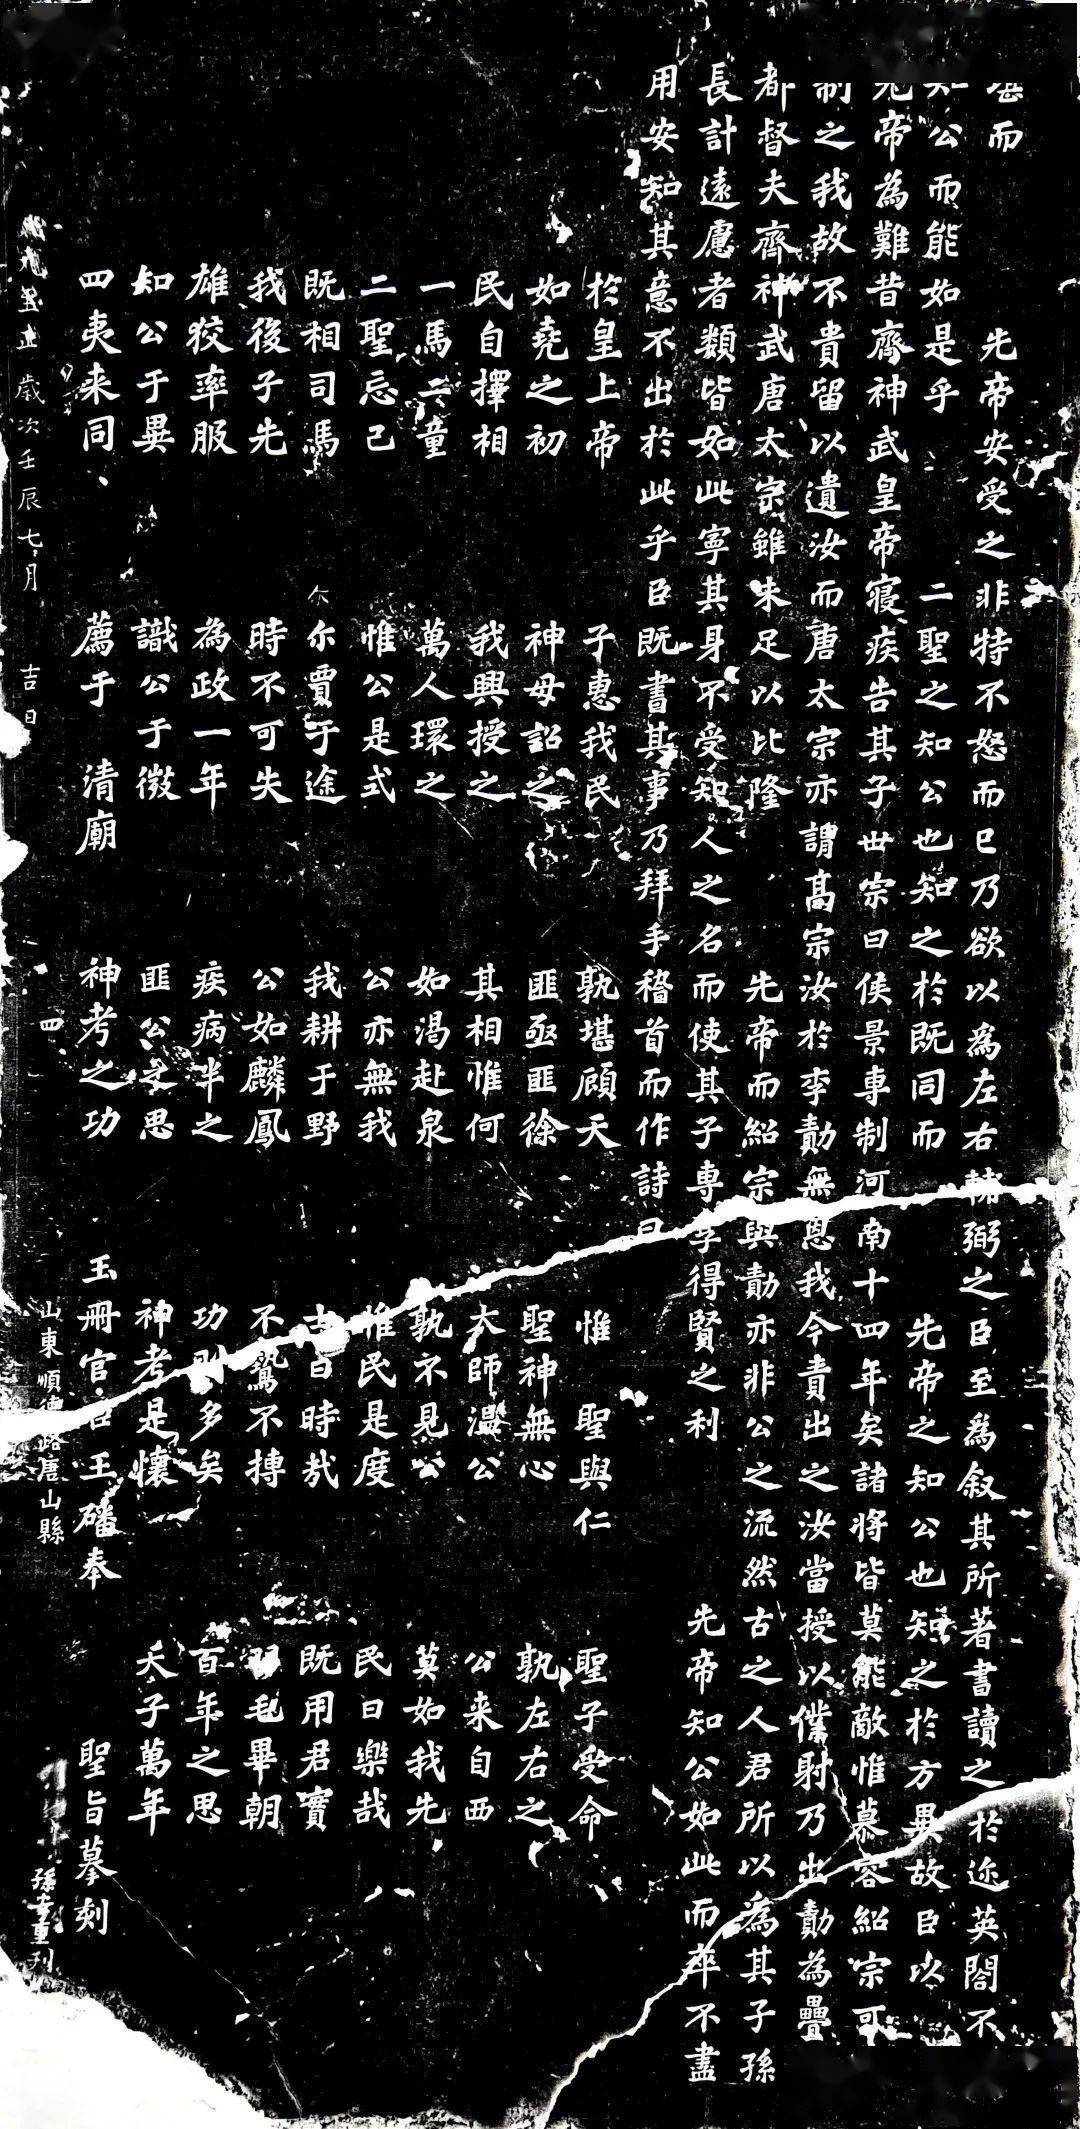 堪而　先帝安受之非特不怒而已乃欲以為左右輔弼之臣至為叙其所著書讀之於迩英閤不
知公而能如是乎　二聖之知公也知之於既同而　先帝之知公也知之於方異故臣以
先帝為難昔齊神武皇帝寢疾告其子世宗曰侯景専制河南十四年矣諸將皆莫能敵惟慕容紹宗可
制之我故不貴留以遺汝而唐太宗亦謂髙宗汝於李勣無恩我今責出之汝當授以僕射乃出勣為疊
都督夫齊神武唐太宗雖未足以比隆　先帝而紹宗與勣亦非公之流然古之人君所以為其子孫
長計遠慮者類皆如此寧其身不受知人之名而使其子専享得賢之利　先帝知公如此而卒不盡
用安知其意不出於此乎臣既書其事乃拜手稽首而作詩曰
於皇上帝　子惠我民　孰堪顧天　惟　聖與仁　聖子受命
如堯之初　神母詔之　匪亟匪徐　聖神無心　孰左右之
民自擇相　我興授之　其相惟何　太師溫公　公来自西
一馬二童　萬人環之　如渴赴泉　孰不見公　莫如我先
二聖忘己　惟公是式　公亦無我　惟民是度　民曰樂哉
既相司馬　尔賈于途　我耕于野　士曰時哉　既用君實
我後子先　時不可失　公如麟鳳　不鷙不搏　羽毛畢朝
雄狡率服　為政一年　疾病半之　功則多矣　百年之思
知公于異　識公于微　匪公之思　神考是懷　天子萬年
四夷来同　薦于　清廟　神考之功　玉冊官臣王磻奉　聖旨摹刻
歲次壬辰七月　吉日　四　山東順德路唐山縣　孫　重刊